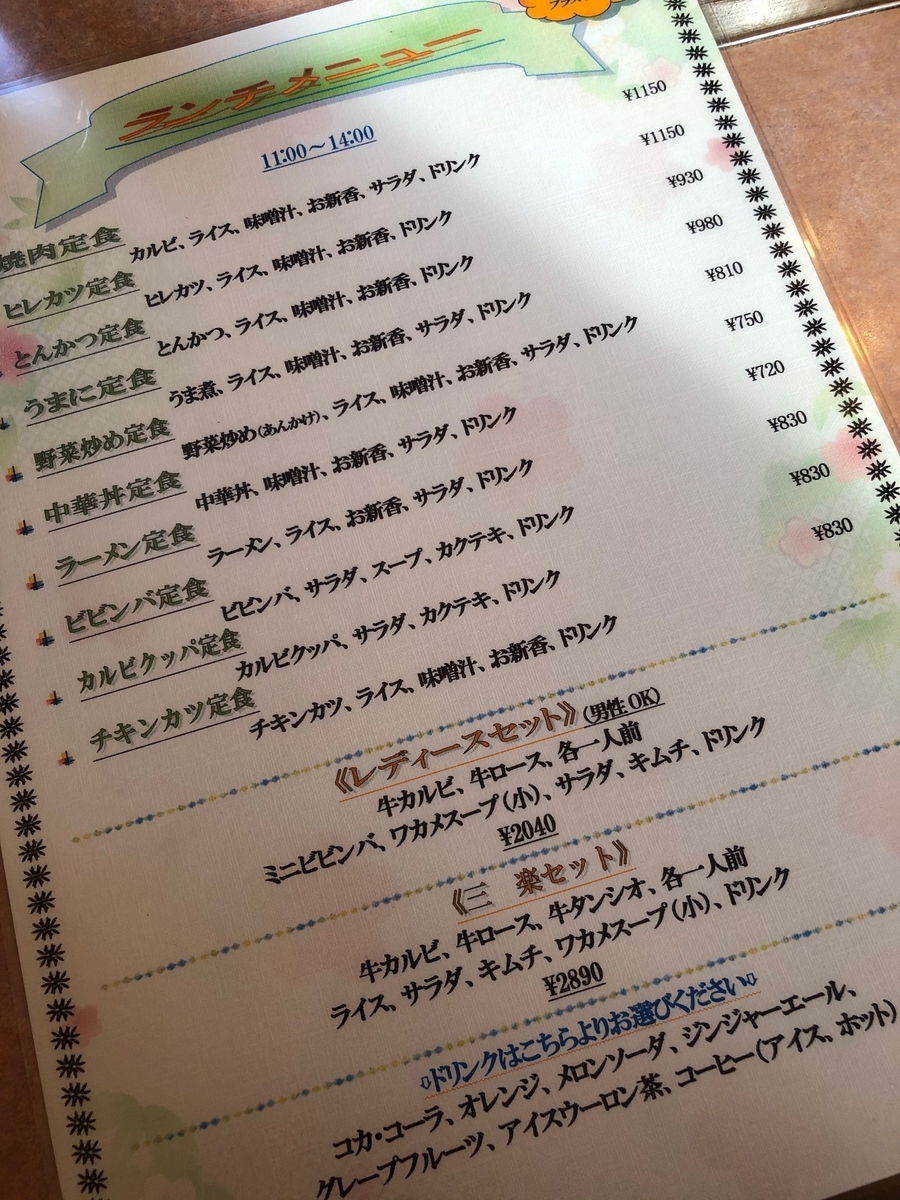 ランチメニュー
11:00～14:00
焼肉定食 カルビ、ライス、味噌汁、お新香、サラダ、ドリンク ¥1150
ヒレカツ定食 ヒレカツ、ライス、味噌汁、お新香、ドリンク ¥1150
とんかつ定食 とんかつ、ライス、味噌汁、お新香、ドリンク ¥930
うまに定食 うま煮、ライス、味噌汁、お新香、サラダ、ドリンク ¥980
野菜炒め定食 野菜炒め(あんかけ)、ライス、味噌汁、お新香、サラダ、ドリンク ¥810
中華丼定食 中華丼、味噌汁、お新香、サラダ、ドリンク ¥750
ラーメン定食 ラーメン、ライス、お新香、サラダ、ドリンク ¥720
ビビンバ定食 ビビンバ、サラダ、スープ、カクテキ、ドリンク ¥830
カルビクッパ定食 カルビクッパ、サラダ、カクテキ、ドリンク ¥830
チキンカツ定食 チキンカツ、ライス、味噌汁、お新香、ドリンク ¥830
《レディースセット》(男性OK)
牛カルビ、牛ロース、各一人前
ミニビビンバ、ワカメスープ(小)、サラダ、キムチ、ドリンク
¥2040
《三 楽セット》
牛カルビ、牛ロース、牛タンシオ、各一人前
ライス、サラダ、キムチ、ワカメスープ(小)、ドリンク
¥2890
⇩ドリンクはこちらよりお選びください⇩
コカ・コーラ、オレンジ、メロンソーダ、ジンジャーエール、
グレープフルーツ、アイスウーロン茶、コーヒー(アイス、ホット)